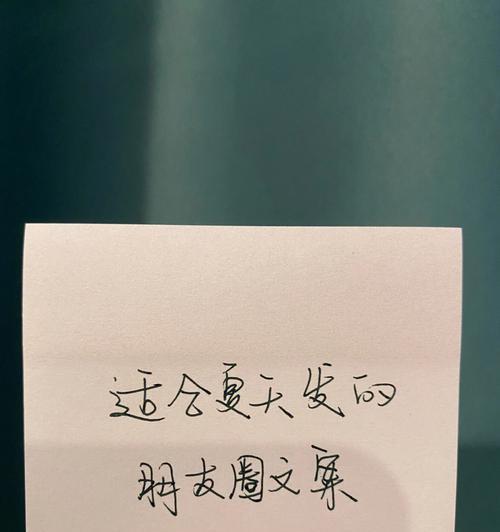 适合夏天发的
朋友圈文案